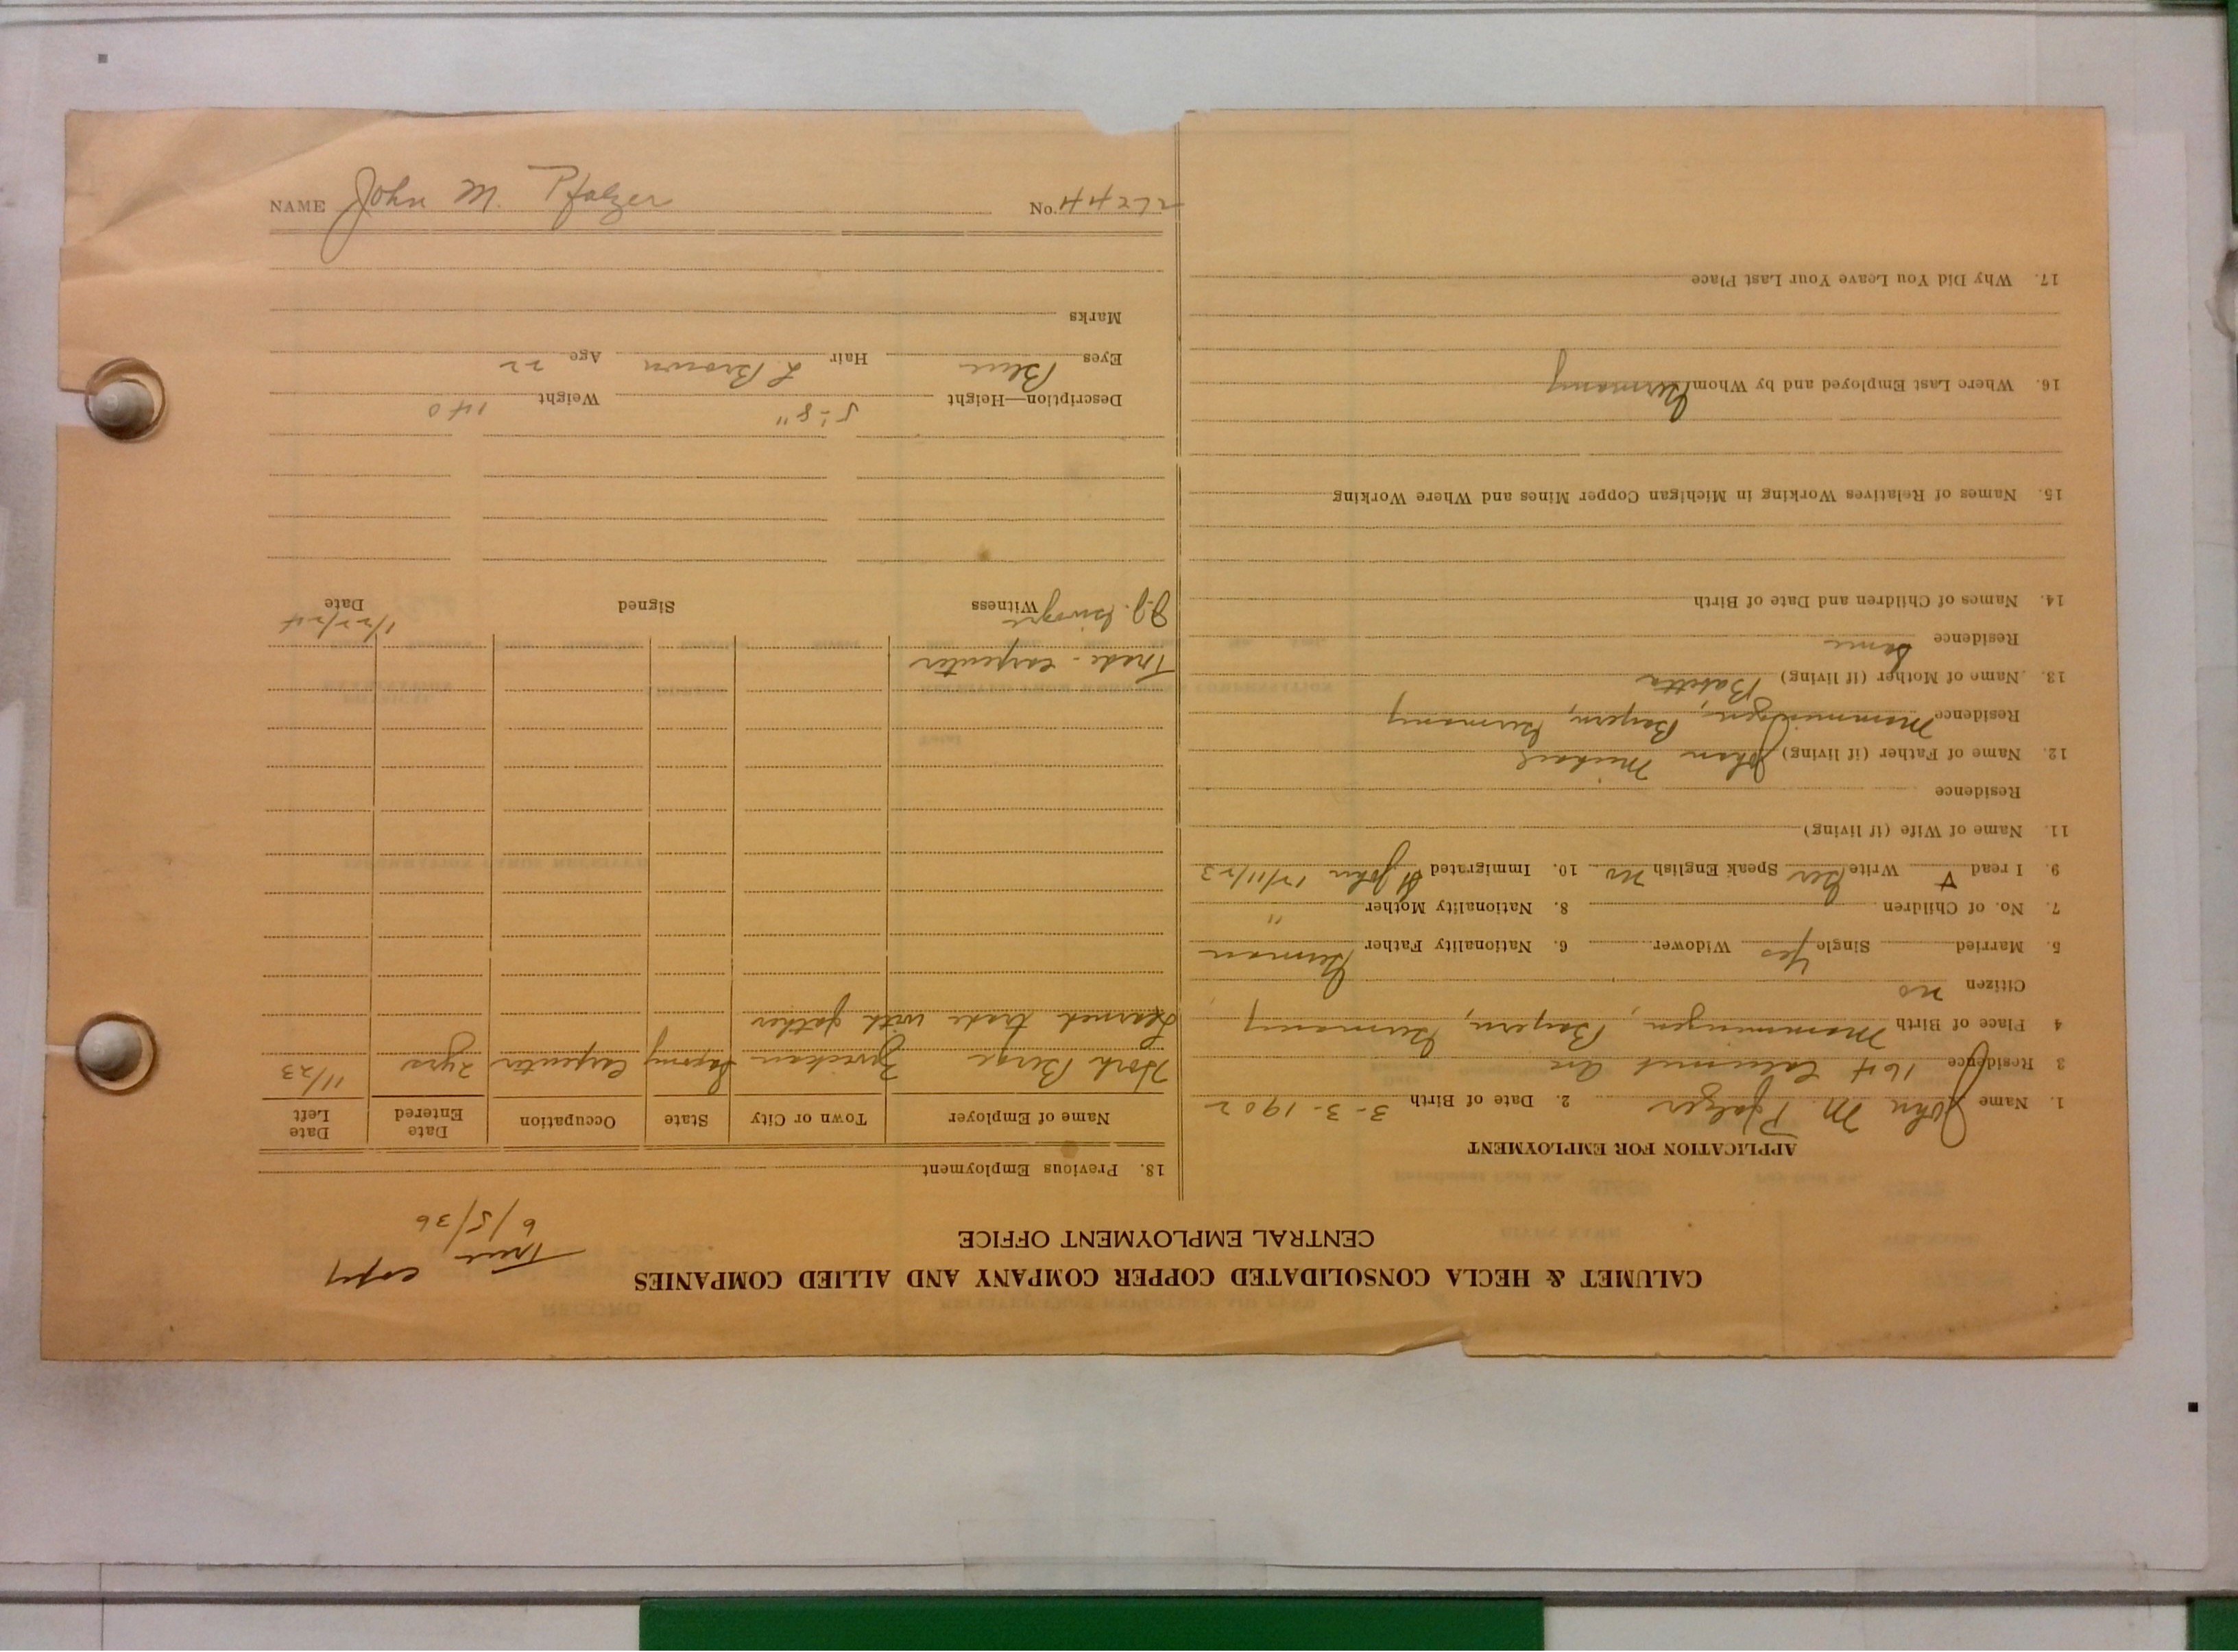 CALUMET & HECLA CONSOLIDATED COPPER COMPANY AND ALLIED COMPANIES
CENTRAL EMPLOYMENT OFFICE
True copy
6/5/36
APPLICATION FOR EMPLOYMENT
1. Name John M. Pfalzer 2. Date of Birth 3-3-1902
3 Residence 1604 Calumet Ave
4 Place of Birth Mammingen, Bayern, Germany
Citizen no
5. Married Single Yes Widower 6. Nationality Father German
7. No. of Children 8. Nationality Mother "
9. I read Write Ger Speak English no 10. Immigrated St John 12/11/23
11. Name of Wife (if living)
Residence
12. Name of Father (if living) Johan Michael
Residence Mammingen, Bayern, Germany
13. Name of Mother (if living) Babetta
Residence Same
14. Names of Children and Date of Birth
15. Names of Relatives Working in Michigan Copper Mines and Where Working
16. Where Last Employed and by Whom Germany
17. Why Did You Leave Your Last Place
18. Previous Employment
Name of Employer Town or City State Occupation Date Entered Date Left
Hoch Berge Zwickau Saxony Carpenter 2yrs 11/23
Learned trade with father
Trade - carpenter
J.J. Witness Signed Date 1/22/24
Description—Height 5'-8" Weight 140
Eyes Blue Hair L Brown Age 22
Marks
NAME John M. Pfalzer No.